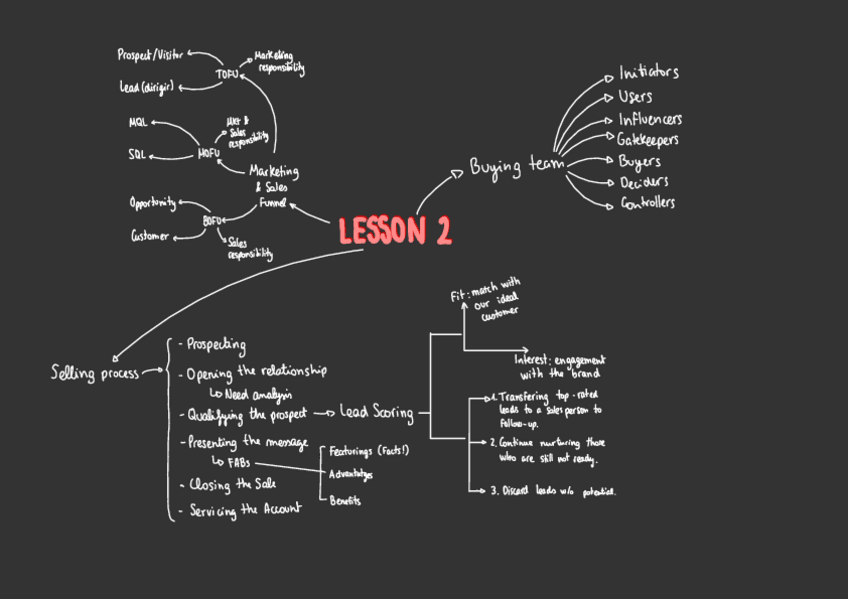 LESSON 2
Marketing
& Sales
Funnel
TOFU
Prospect/Visitor
Lead (dirigir)
Marketing
responsibility
MOFU
MQL
SQL
MKT &
Sales
responsibility
BOFU
Opportunity
Customer
Sales
responsibility
Buying team
Initiators
Users
Influencers
Gatekeepers
Buyers
Deciders
Controllers
Selling process
- Prospecting
- Opening the relationship
Need analysis
- Qualifying the prospect
Lead Scoring
- Presenting the message
FABs
Featurings (Facts!)
Advantatges
Benefits
- Closing the Sale
- Servicing the Account
Fit: match with
our ideal
customer
Interest: engagement
with the brand
1. Transfering top-rated
leads to a sales person to
follow-up.
2. Continue nurturing those
who are still not ready.
3. Discard leads w/o potential.